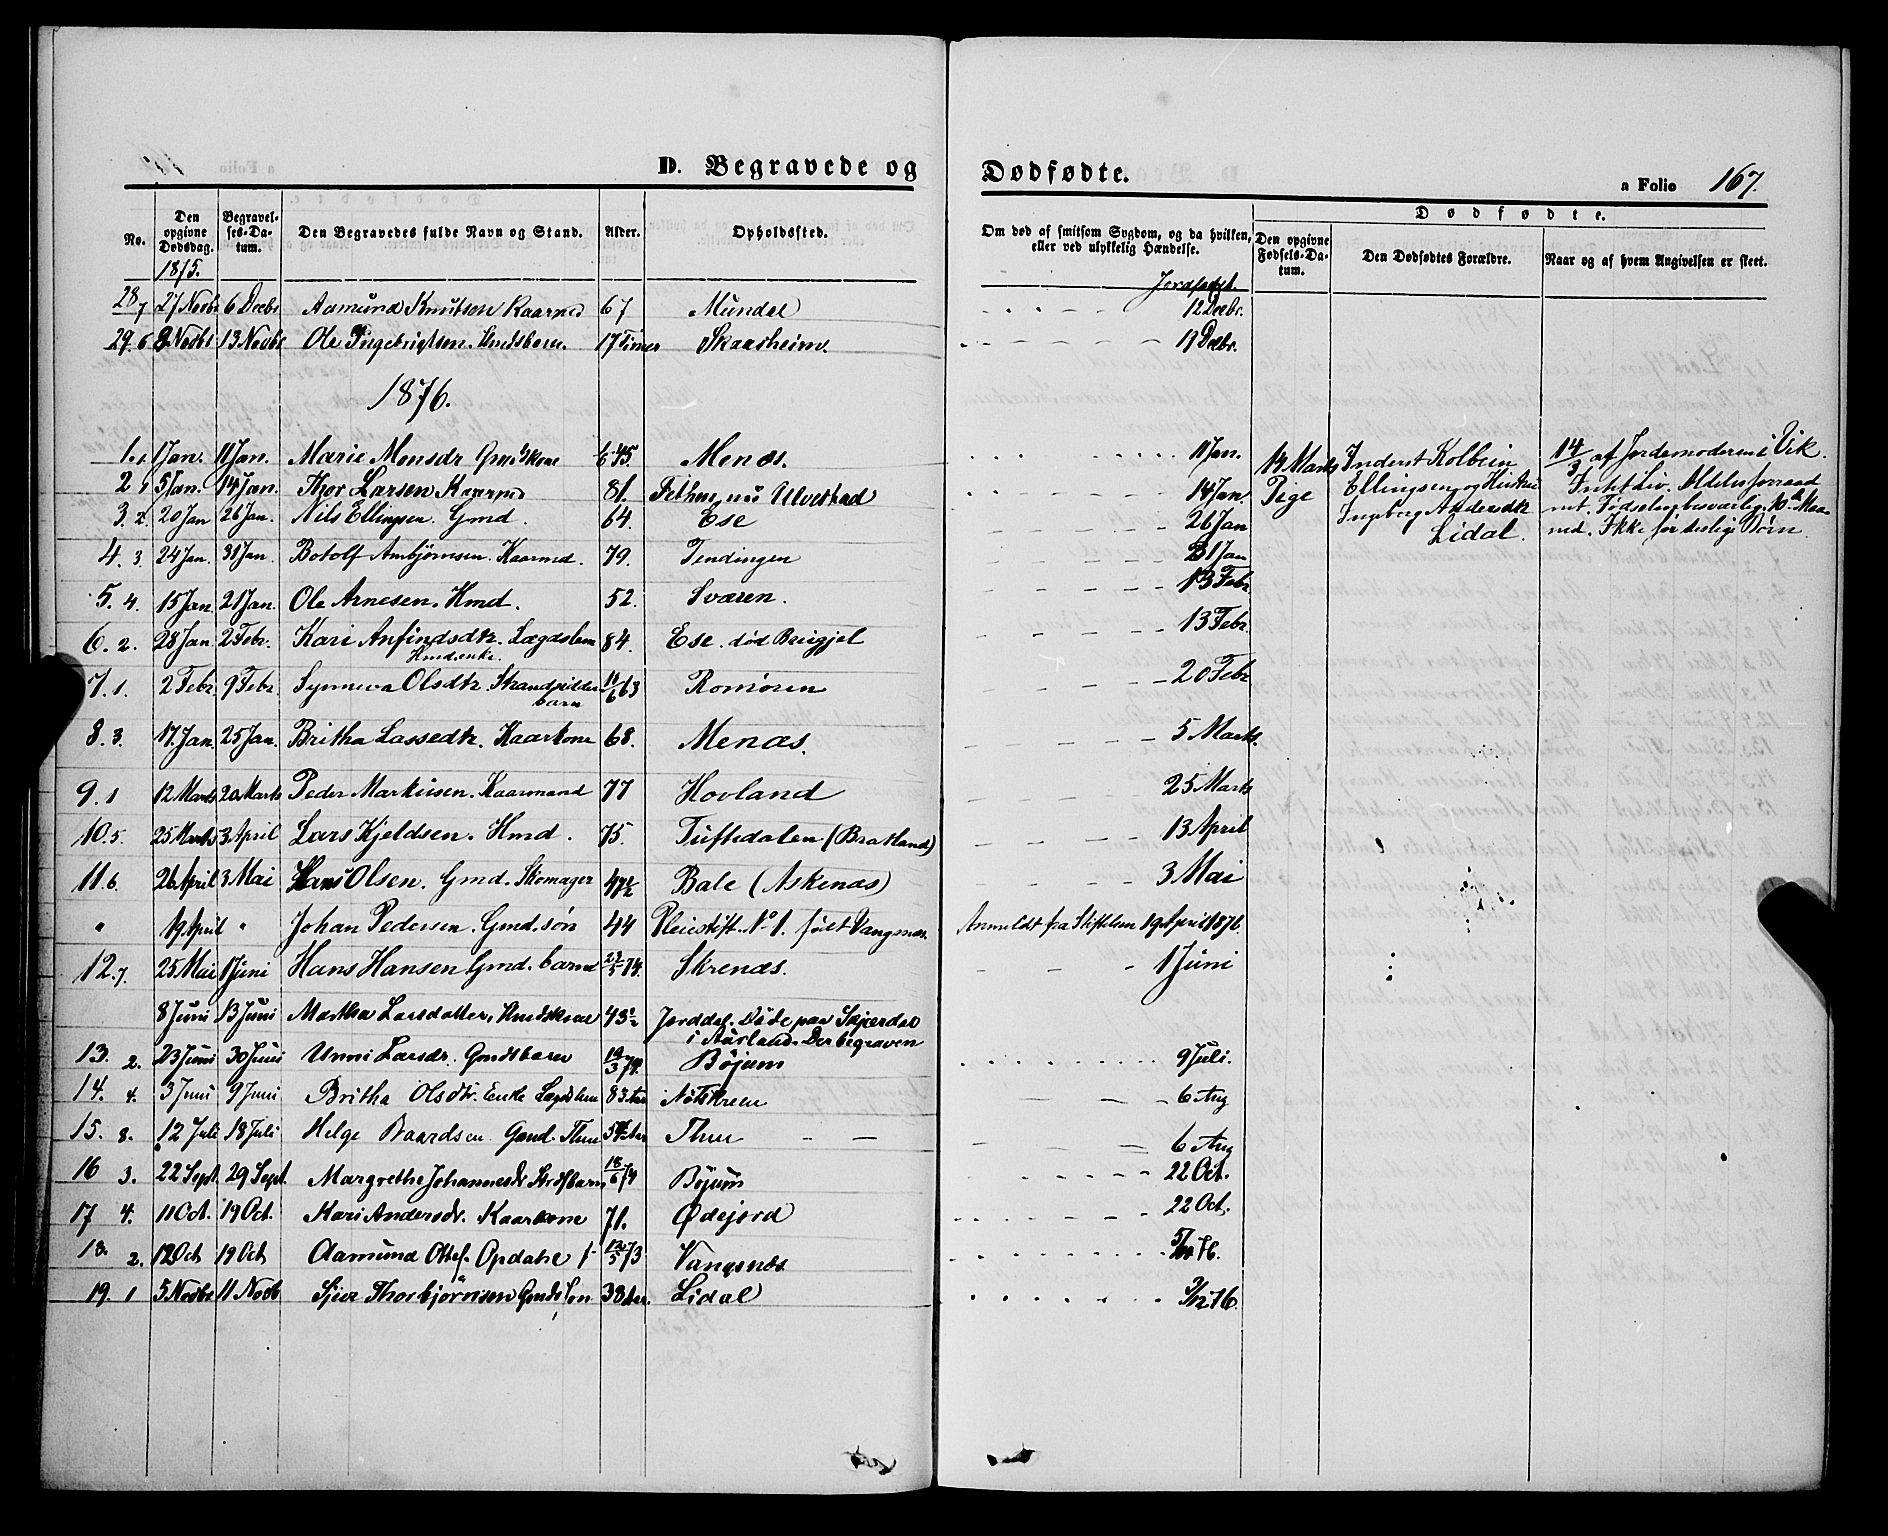 D. Begravede og Dødfødte.
a Folio 167.
No. Den opgivne Dødsdag. Begravelses-Datum. Den Begravedes fulde Navn og Stand. Alder. Opholdssted. Om død af smitsom Sygdom, og da hvilken, eller ved ulykkelig Hændelse.
Dødfødte.
Den opgivne Fødsels-Datum. Den Dødfødtes Forældre. Naar og af hvem Angivelsen er skeet.
1875. Jordfæstet.
28 7 27 Novbr 6 Decbr Aamund Knutsen Kaarmd 67 Mundal 12 Decbr.
29. 6 8 Novbr 13 Novbr Ole Ingebrigtsen. Hmdsbarn. 17 Timer Skaasheim. 19 Decbr.
1876.
1. 1 1 Jan. 11 Jan. Marie Monsdr 45. Menæs. 11 Jan.
2 1 5 Jan. 14 Jan. Thor Larsen Kaarmd 81. nu Ulvestad 14 Jan
3. 2. 20 Jan 26 Jan. Nils Ellingsen. Gmd. 64. Ese 26 Jan
4. 3. 24 Jan. 31 Jan. Botolf Ambjørnsen. Kaarmd. 79. Tendingen 31 Jan
5. 4. 15 Jan. 21 Jan. Ole Arnesen. Hmd. 52. Sværen. 13 Febr
6. 2. 28 Jan. 2 Febr. Kari Anfindsdtr. Lægdslem 84. Ese. død Breigjel 13 Febr.
Hmdenke.
7. 1. 2 Febr 9 Febr Synneva Olsdtr. Strandsidder 11/6 63 Romøren 20 Febr
barn
8. 3. 17. Jan. 25 Jan. Britha Lassedtr. Kaarkone 68. Menæs. 5 Marts.
9. 1 12 Marts 20 Marts Peder Markusen. Kaarmand 77 Hovland 25 Marts
10. 5. 25 Marts 3 April Lars Kjeldsen. Hmd. 75. Tuftedalen (Bratland) 13 April
11. 6. 26 April 3 Mai Hans Olsen. Gmd. Skomager 47½ Bale (Askenæs) 3 Mai
" 19 April " Johan Pedersen. Gmd. søn 44 Pleiestift. No 1. født Vangsnæs. Anmeldt fra Stiftelsen 19 April 1876.
12. 7. 25 Mai 1 Juni Hans Hansen Gmd. barn 74. Skrenæs. 1 Juni
8 Juni 13 Juni Martha Larsdatter, Hmdskone 43½ Jorddal. Døde paa Skjerdal
i Aurland. Der begraven
13. 2. 23 Juni 30 Juni Unni Larsdr. Gmdsbarn 19/3 74. Bøjum 9 Juli.
14. 4. 3 Juni 9 Juni Britha Olsdtr. Enke Lægdslem 83 Aar Nøtskreen 6 Aug
15. 8. 12 Juli 18 Juli Helge Baardsen. Gmd. Thue Aar Thue 6 Aug
16 3. 22 Sept 29 Sept. Margrethe Johannesdr 18/6 74 Bøjum 22 Oct.
17 4. 11 Oct. 19 Oct. Kari Andersdr. Kaarkone 71. Ødejord 22 Oct.
18. 2. 12 Oct 19 Oct Aamund Opdahl 12/5 73 Vangsnæs 76.
19. 1 5 Novbr 11 Novb Sjur Thorbjørnsen Gmds Søn 38 Aar. Lidal 3/12 76.
14 Marts
Pige
Inderst Kolbein
Ellingsen og Hustru
Ingeborg Andersdtr
Lidal.
14/3 af Jordemoderen i Vik.
Intet Liv. Aldeles forraad
net. Fødselen besværlig. 10de Maa
ned. Ikke før deslige Børn.